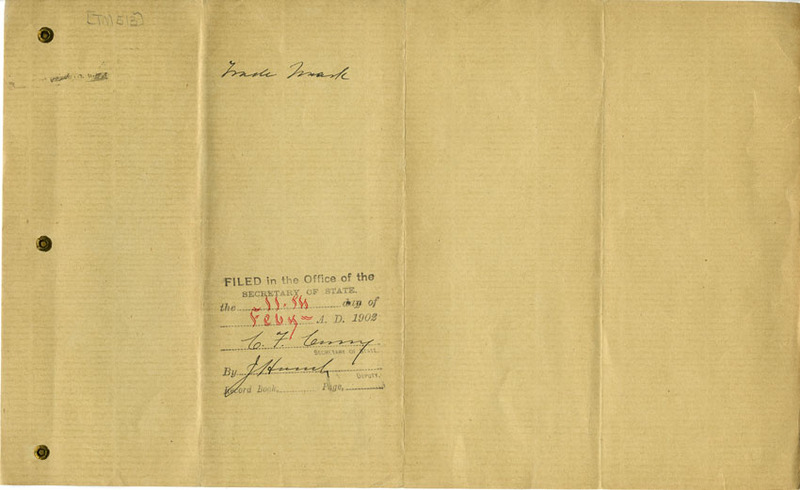 Trade Mark
FILED in the Office of the
SECRETARY OF STATE.
the 11.th day of
Feby A. D. 1902
C. F. Curry
SECRETARY OF STATE.
By J Hoesch
DEPUTY.
Record Book Page,